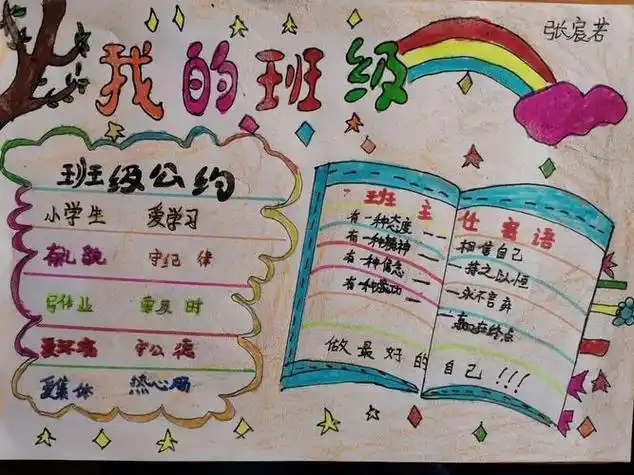 我的班级
张宸若
班级公约
小学生 爱学习
有礼貌 守纪律
写作业 要及时
爱环境 守公德
爱集体 热心肠
班主任寄语
有一种态度——相信自己
有一种精神——持之以恒
有一种信念——永不言弃
有一种成功——
做最好的自己!!!